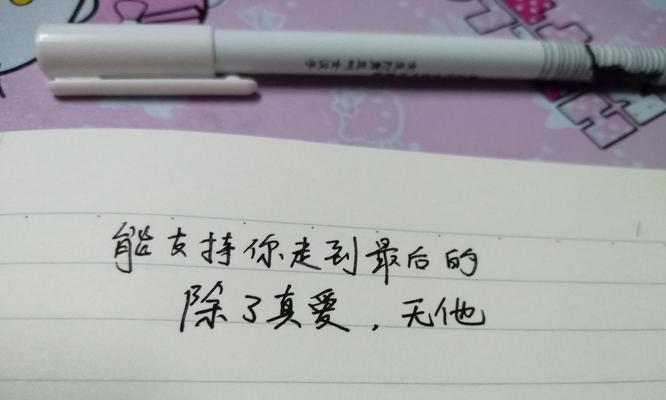 能支持你走到最后的
除了真爱，无他